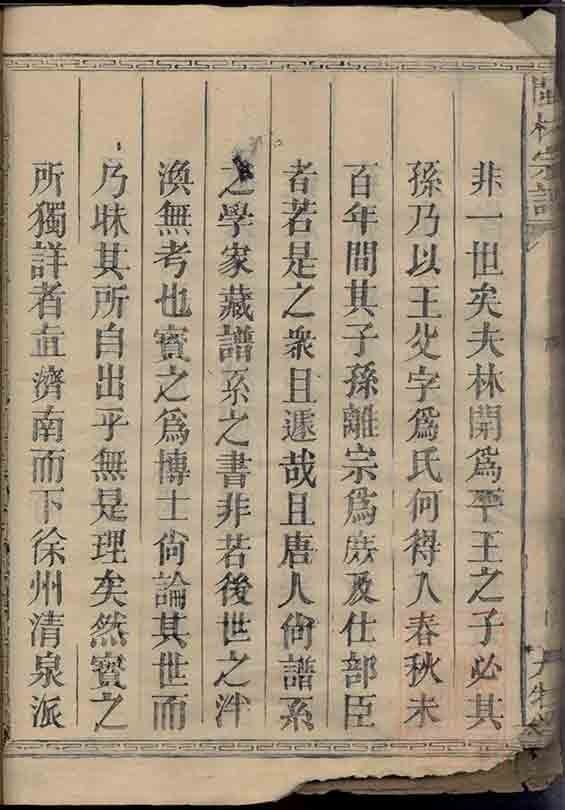 林宗譜
非一世矣夫林開為平王之子必其
孫乃以王父字為氏何得入春秋未
百年間其子孫離宗為族及仕部臣
者若是之衆且遽哉且唐人尙譜系
之學家藏譜系之書非若後世之泮
渙無考也寳之為博士尙論其世而
乃昧其所自出乎無是理矣然寳之
所獨詳者直濟南而下徐州清泉派